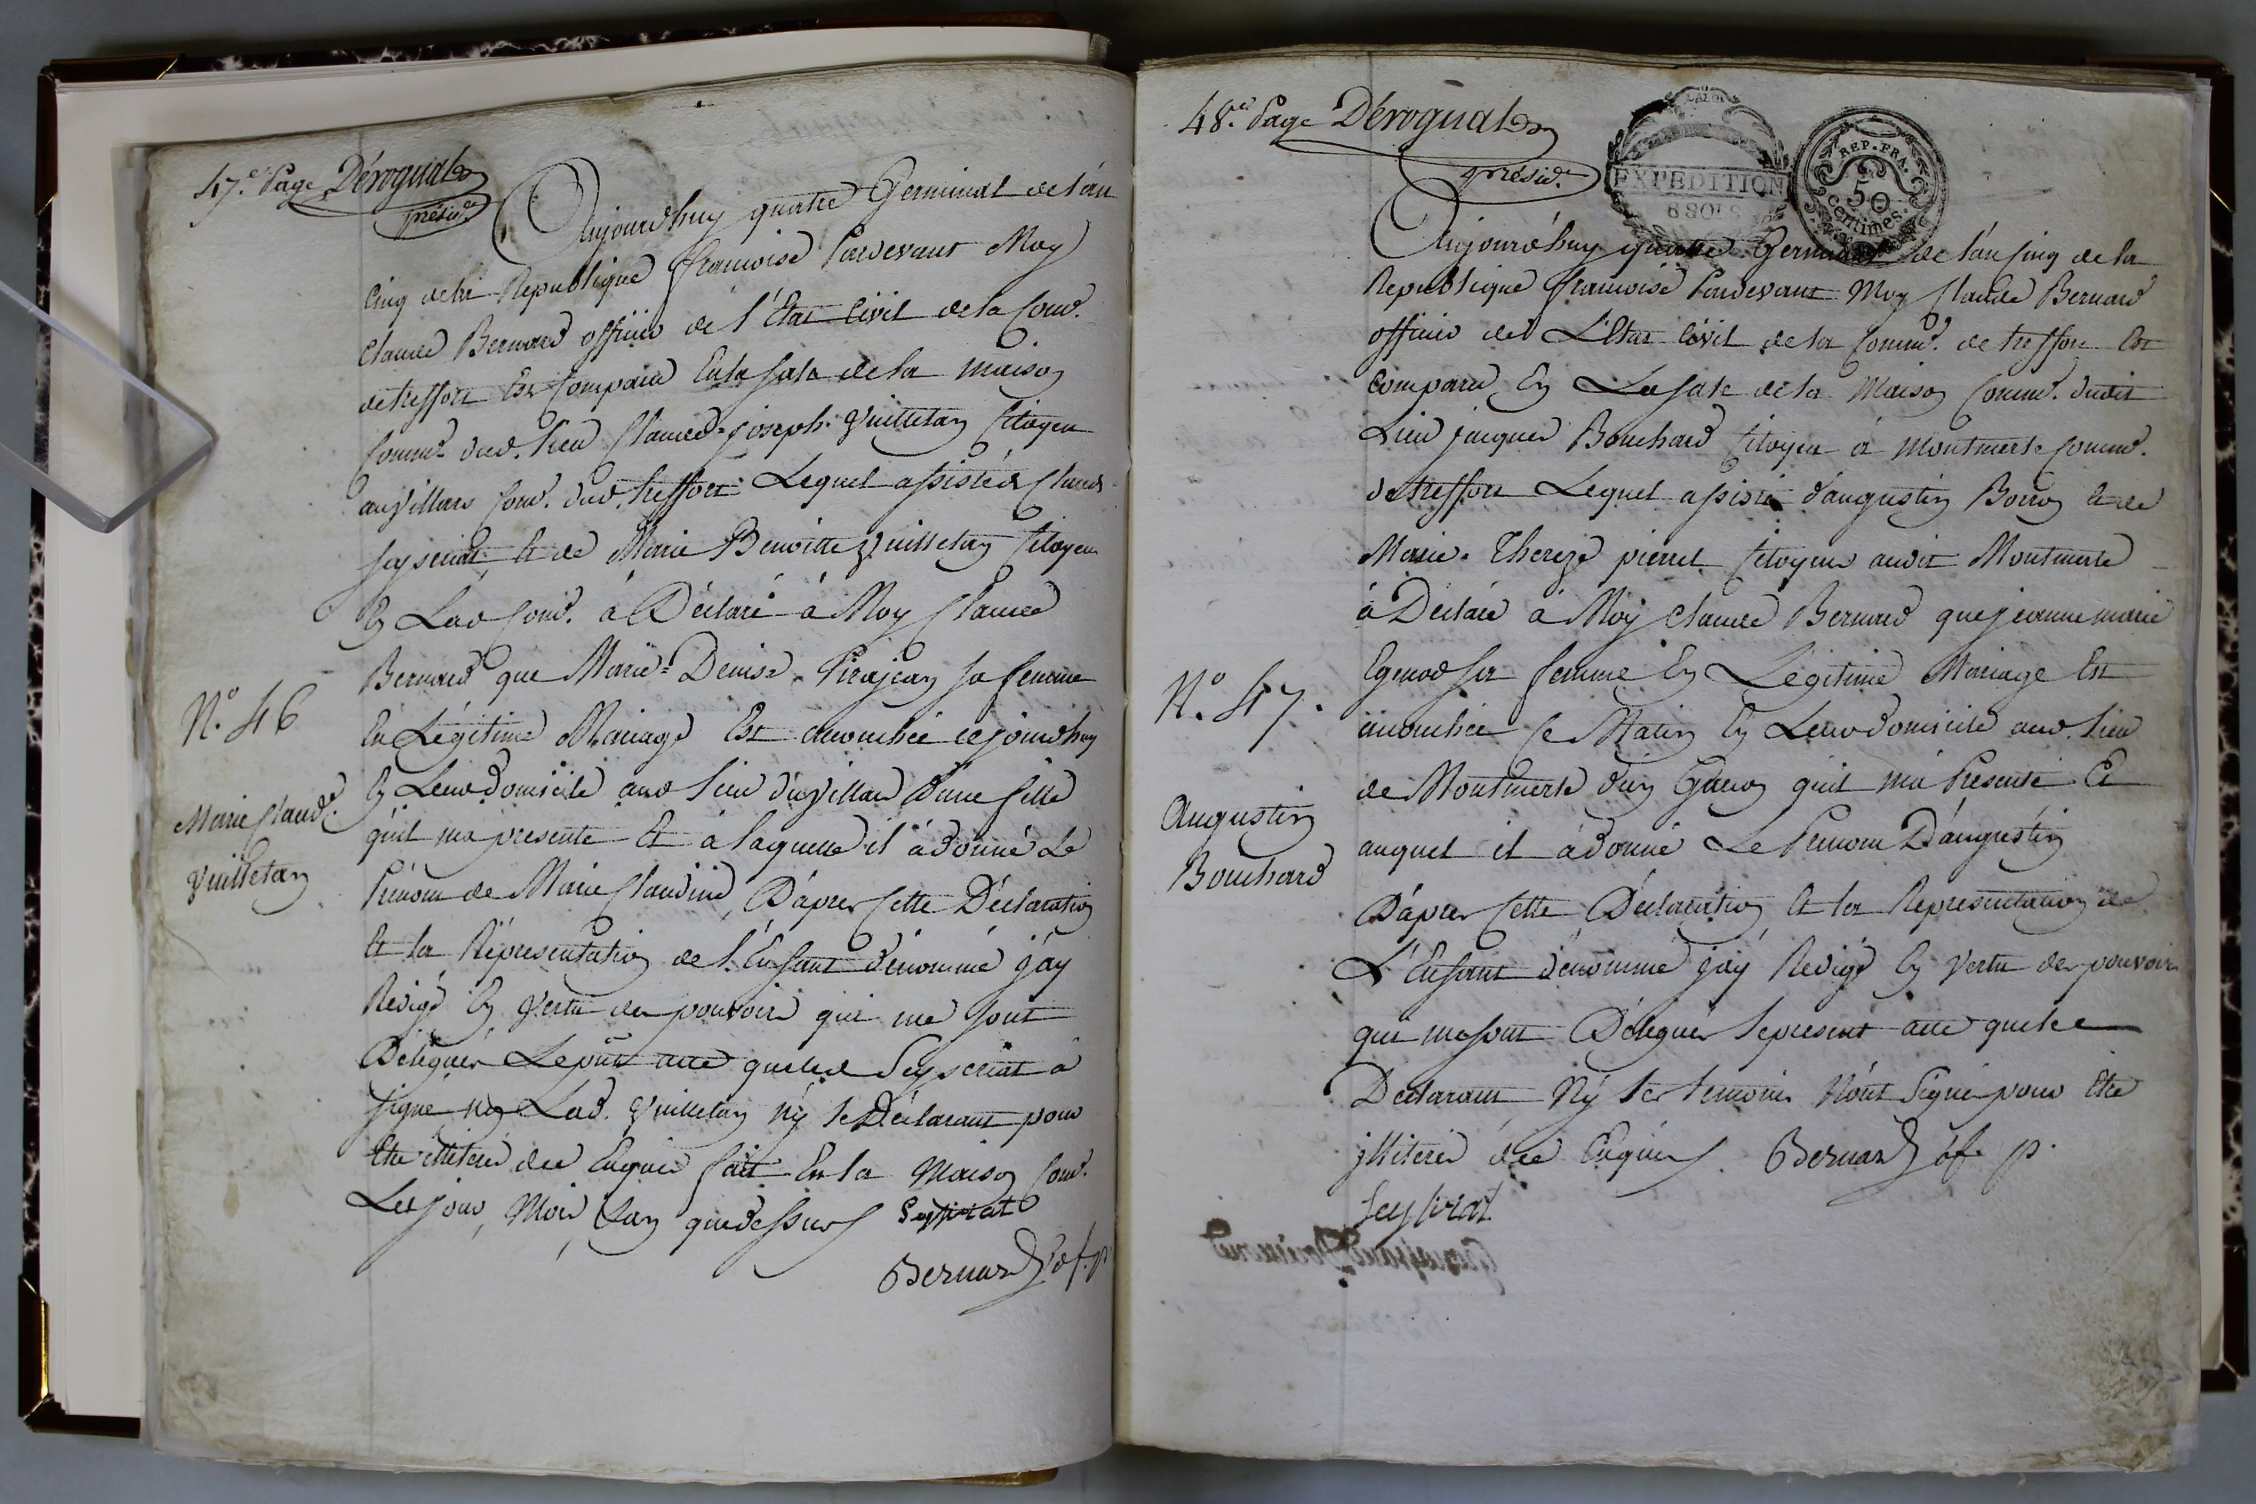 47.e Page Dérognat
présid.t
Aujourdhuy quatre Germinal de l'an
Cinq de la Republique francoise Pardevant Moy
Claude Bernard officier de l'Etat Civil de la Com.e
de treffort Est Comparu En la sale de la maison
Comm.e dud. lieu Claude-joseph Vuilletan Citoyen
au villars Com.e dud. treffort Lequel assisté de Claude
Seyseriat et de Marie Benoitte Vuilletan Citoyen
En Lad Com.e à Déclaré à Moy Claude
Bernard que Marie-Denise Pirajean sa femme
En Légitime Mariage Est accouchée cejourdhuy
En Leur Domicile aud lieu du villard D'une fille
quil ma presenté Et à laquelle il à donné Le
Prénom de Marie Claudine, D'après Cette Déclaration
Et la Réprésentation de l'Enfant dénommé j'ay
Rédigé En Vertu des pouvoirs qui me sont
Délégués Le pnt acte que led Seyseriat à
signé ny Lad. Vuilletan ny le Déclarant pour
Etre illiteré de ce Enquis fait En la Maison Com.e
Les jour, Mois, & an que dessus Seyserat
Bernard of. p
N.o 46
Marie Claud.e
Vuilletan
48.e Page Dérognat
présid.t
LA LOI
EXPEDITION
6 SOLS
REP. FRA.
50
centimes.
Aujourdhuy quatre Germinal de l'an Cinq de la
Republique francoise Pardevant Moy Claude Bernard
officier de L'Etat Civil de la Comm.e de treffort Est
Comparu En La sale de la Maison Comm.e dudit
Lieu jacques Bouchard Citoyen à Montmerle Comm.e
de treffort Lequel assisté d'augustin Borron et de
Marie-Thereze pierret Citoyens audit Montmerle
à Déclaré à Moy Claude Bernard que jeanne marie
sa femme En Légitime Mariage Est
accouchée Ce Matin En Leur domicile aud. lieu
de Montmerle d'un Garçon quil ma Presenté Et
auquel il à donné Le Prenom D'augustin
D'après Cette Déclaration Et la Representation de
L'Enfant dénommé j'ay Rédigé En Vertu des pouvoirs
qui me sont Délégués le present acte que le
Déclarant Ny les temoins N'ont Signé pour Etre
jlliterés de ce Enquis. Bernard of. p.
Seyserat
N.o 47.
Augustin
Bouchard